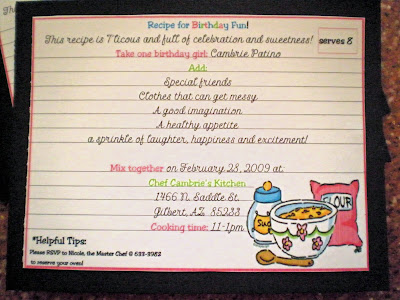 Recipe for Birthday Fun!
This recipe is 7licous and full of celebration and sweetness!
serves 8
Take one birthday girl: Cambrie Patino
Add:
Special friends
Clothes that can get messy
A good imagination
A healthy appetite
a sprinkle of laughter, happiness and excitement!
Mix together on February 28, 2009 at:
Chef Cambrie's Kitchen
1466 N. Saddle St.
Gilbert, AZ 85233
Cooking time: 11-1pm
Sug
FLOUR
*Helpful Tips:
Please RSVP to Nicole, the Master Chef @ 633-8982
to reserve your oven!